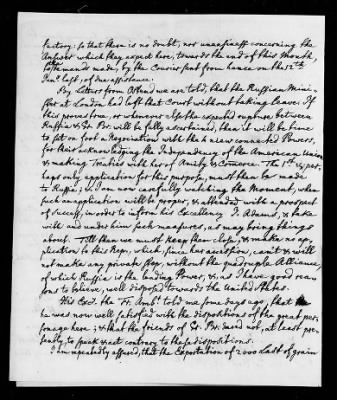 factory: so that there is no doubt, nor uneasiness concerning the
Answer which they expect here, towards the end of this Month,
to the demands made, by the Courier sent from hence on the 12th
Jany. last, of due assistance.
By Letters from Ostend we are told, that the Russian Mini-
ster at London had left that Court without taking leave. If
this proves true, or whenever else the expected rupture between
Russia & Gr. Br. will be fully ascertained, then it will be time
to set on foot a Negociation with the new connected Powers,
for their acknowledging the Independency of the American Union
& making Treaties with her of Amity & Commerce. The 1st. & per-
haps only application for this purpose, must then be made
to Russia; & I am now carefully watching the Moment, when
such an application will be proper, & attended with a prospect
of success, in order to inform his Excellency J. Adams, & take
with and under him such measures, as may bring things
about. Till then we must keep them close, & make no ap-
plication to this Rep., which, since her accession, can't & will
not make any private step, without the quadruple Alliance,
of which Russia is the leading Power, &, as I have good rea-
sons to believe, well disposed towards the United States.
His Exc. the Fr. Ambr. told me some days ago, that
he was now well satisfied with the dispositions of the great per-
sonage here; & that the friends of Gr. Br. dared not, at least pre-
sently, to speak & act contrary to these dispositions.
I am repeatedly assured, that the Exportation of 2000 Last of grain